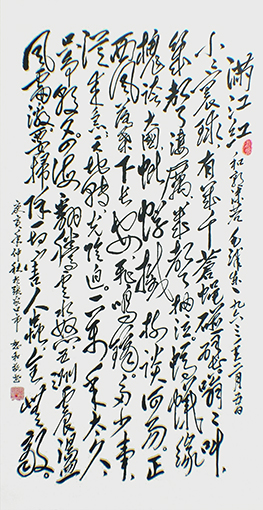 满江红 和郭沫若 毛泽东
小小寰球有几个苍蝇碰壁嗡嗡叫
几声凄厉几声抽泣蚂蚁缘
槐夸大国蚍蜉撼树谈何易正
西风落叶下长安飞鸣镝多少事
从来急天地转光阴迫一万年太久
只争朝夕四海翻腾云水怒五洲震荡
风雷激要扫除一切害人虫全无敌
庚寅年仲秋于张家界